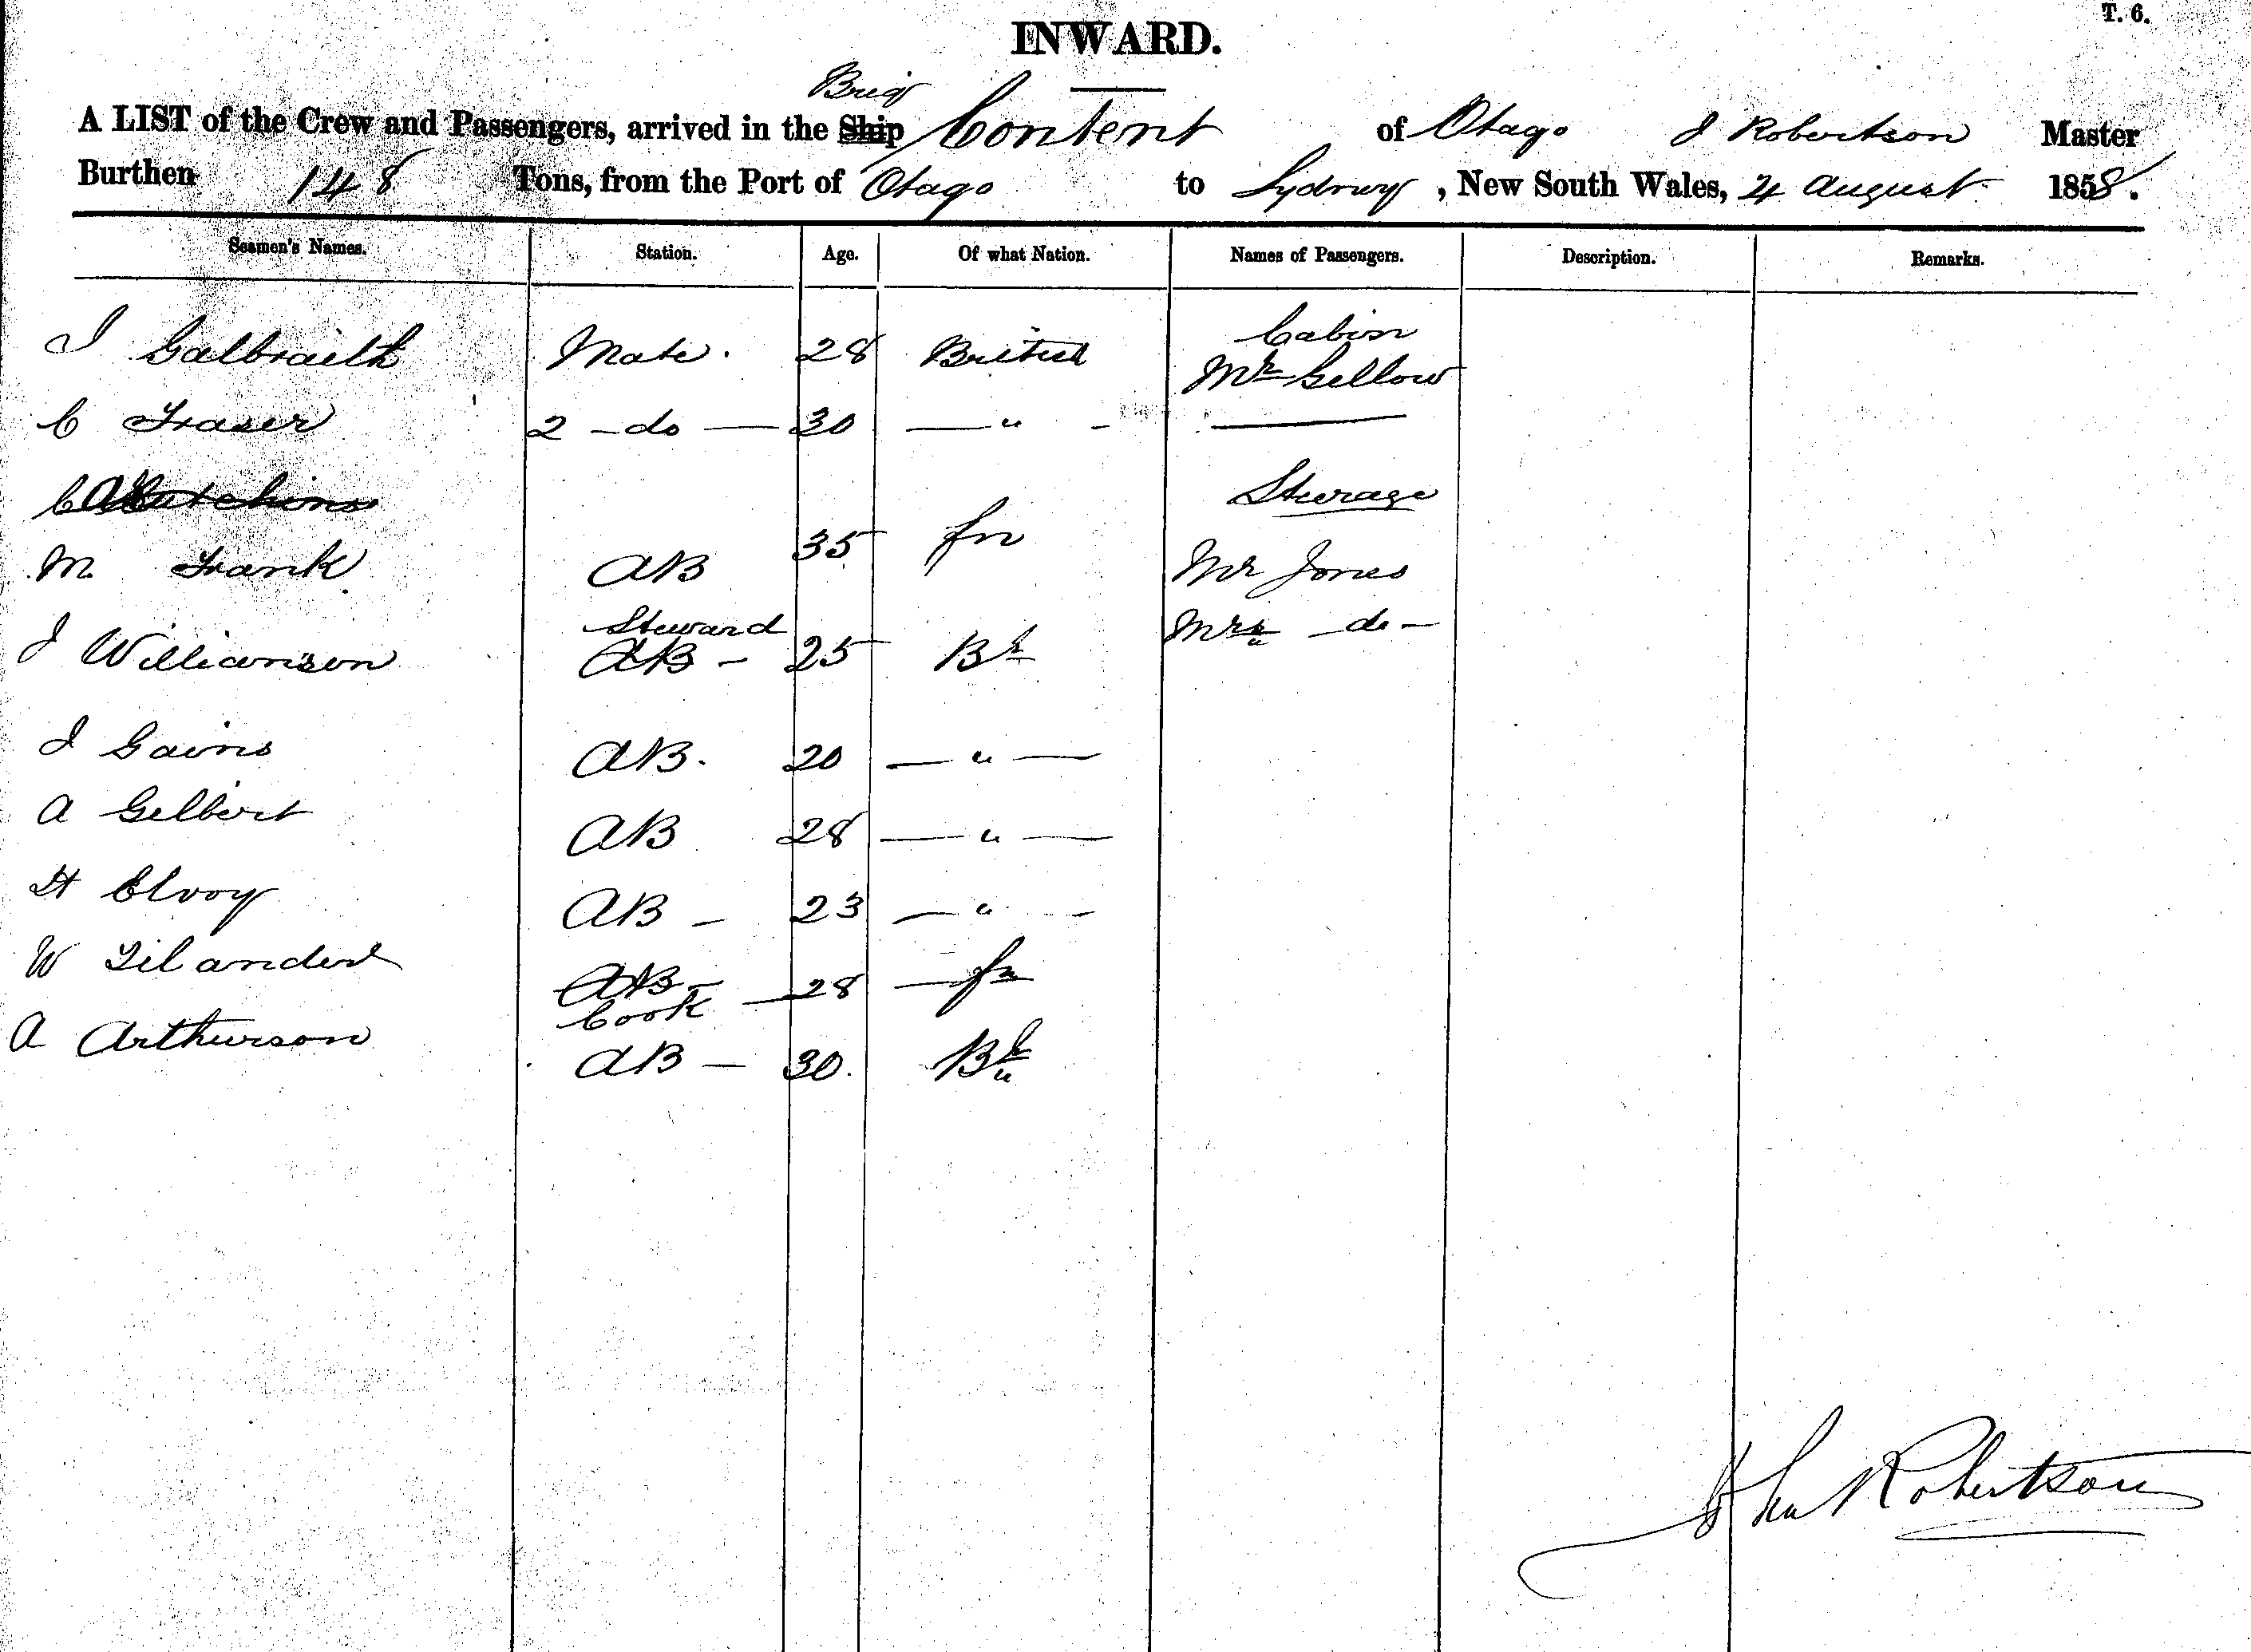 T. 6.
INWARD.
Brig
A LIST of the Crew and Passengers, arrived in the Ship Content of Otago J Robertson Master
Burthen 148 Tons, from the Port of Otago to Sydney, New South Wales, 4 August 1858.
Seamen's Names. Station. Age. Of what Nation. Names of Passengers. Description. Remarks.
Cabin
J Galbraith Mate. 28 British Mr Gellow
C Fraser 2 - do — 30 — " -
Steerage
M Frank AB 35 fn Mr Jones
Steward Mrs - do -
J Williamson AB - 25 Bh
J Gains AB. 20 — " —
A Gelbert AB 28 — " —
H Elvoy AB - 23 — " -
W AB - 28 — fn
Cook
A Arthurson AB — 30. Bh
John Robertson